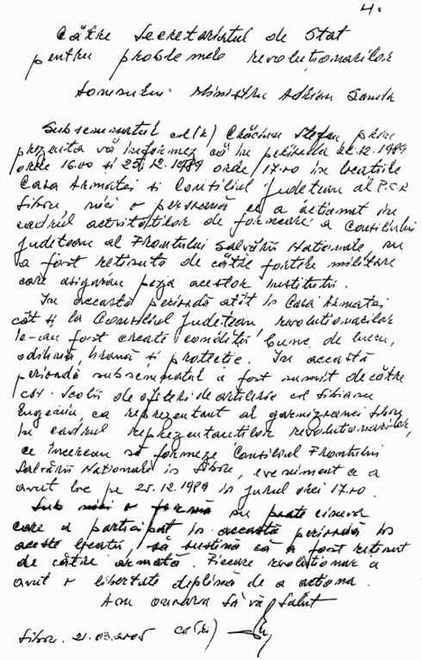 4.
Către Secretariatul de Stat
pentru problemele revoluționarilor
Domnului Ministru Adrian Sanda
Subsemnatul col(r) Crăciun Ștefan, prin
prezenta vă informez că în perioada 22.12.1989
orele 16.00 și 25.12.1989 orele 17.00 în localurile
Casa Armatei și Consiliul județean al P.C.R
Sibiu nici o persoană ce a acționat în
cadrul activităților de formare a Consiliului
județean al Frontului Salvării Naționale, nu
a fost reținută de către forțele militare
care asigurau paza acestor instituții.
In această perioadă atît la Casa Armatei
cît și la Consiliul Județean, revoluționarilor
le-au fost create condiții bune de lucru,
odihnă, hrană și protecție. In această
perioadă subsemnatul a fost numit de către
cdt. Școlii de ofițeri de artilerie col
Eugeniu, ca reprezentant al garnizoanei Sibiu
în cadrul reprezentanților revoluționarilor,
ce încercau să formeze Consiliul Frontului
Salvării Naționale în Sibiu, eveniment ce a
avut loc pe 25.12.1989 în jurul orei 17.00.
Sub nici o formă nu poate cineva
care a participat în această perioadă în
aceste locații, să susțină că a fost reținut
de către armată. Fiecare revoluționar a
avut o libertate deplină de a acționa.
Am onoarea să vă salut
Sibiu. 21.03.2005 col(r)